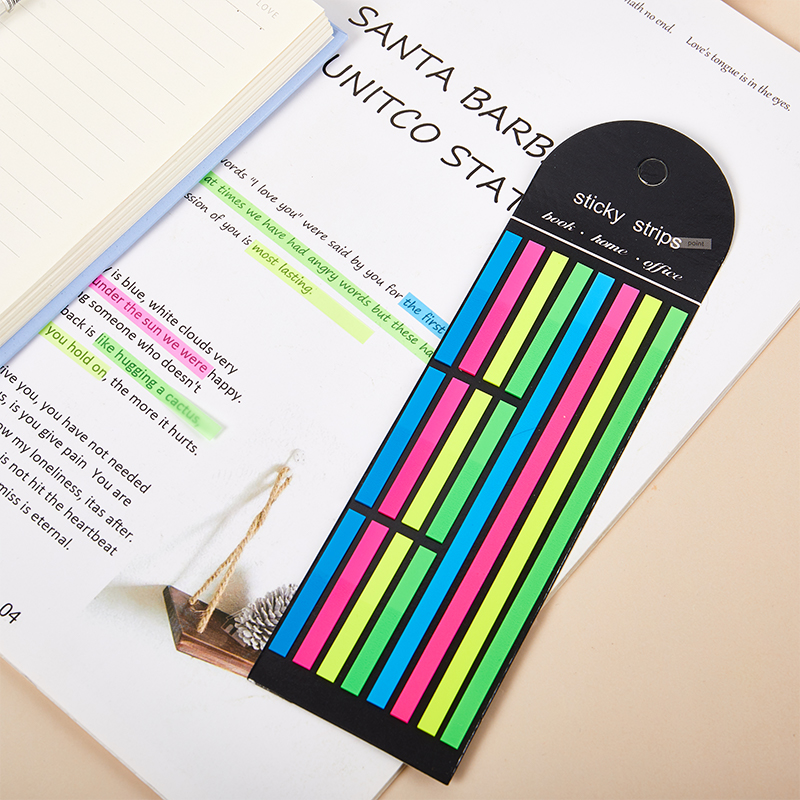 LOVE
Love's tongue is in the eyes.
no end.
SANTA BARB
UNITCO STAT
sticky strips
point
book · home · office
words "I love you" were said by you for the first
at times we have had angry words but these ha
ssion of you is most lasting.
is blue, white clouds very
under the sun we were happy.
someone who doesn't
back is like hugging a cactus,
you hold on, the more it hurts.
ive you, you have not needed
is you give pain You are
ow my loneliness, itas after.
is not hit the heartbeat
miss is eternal.
04